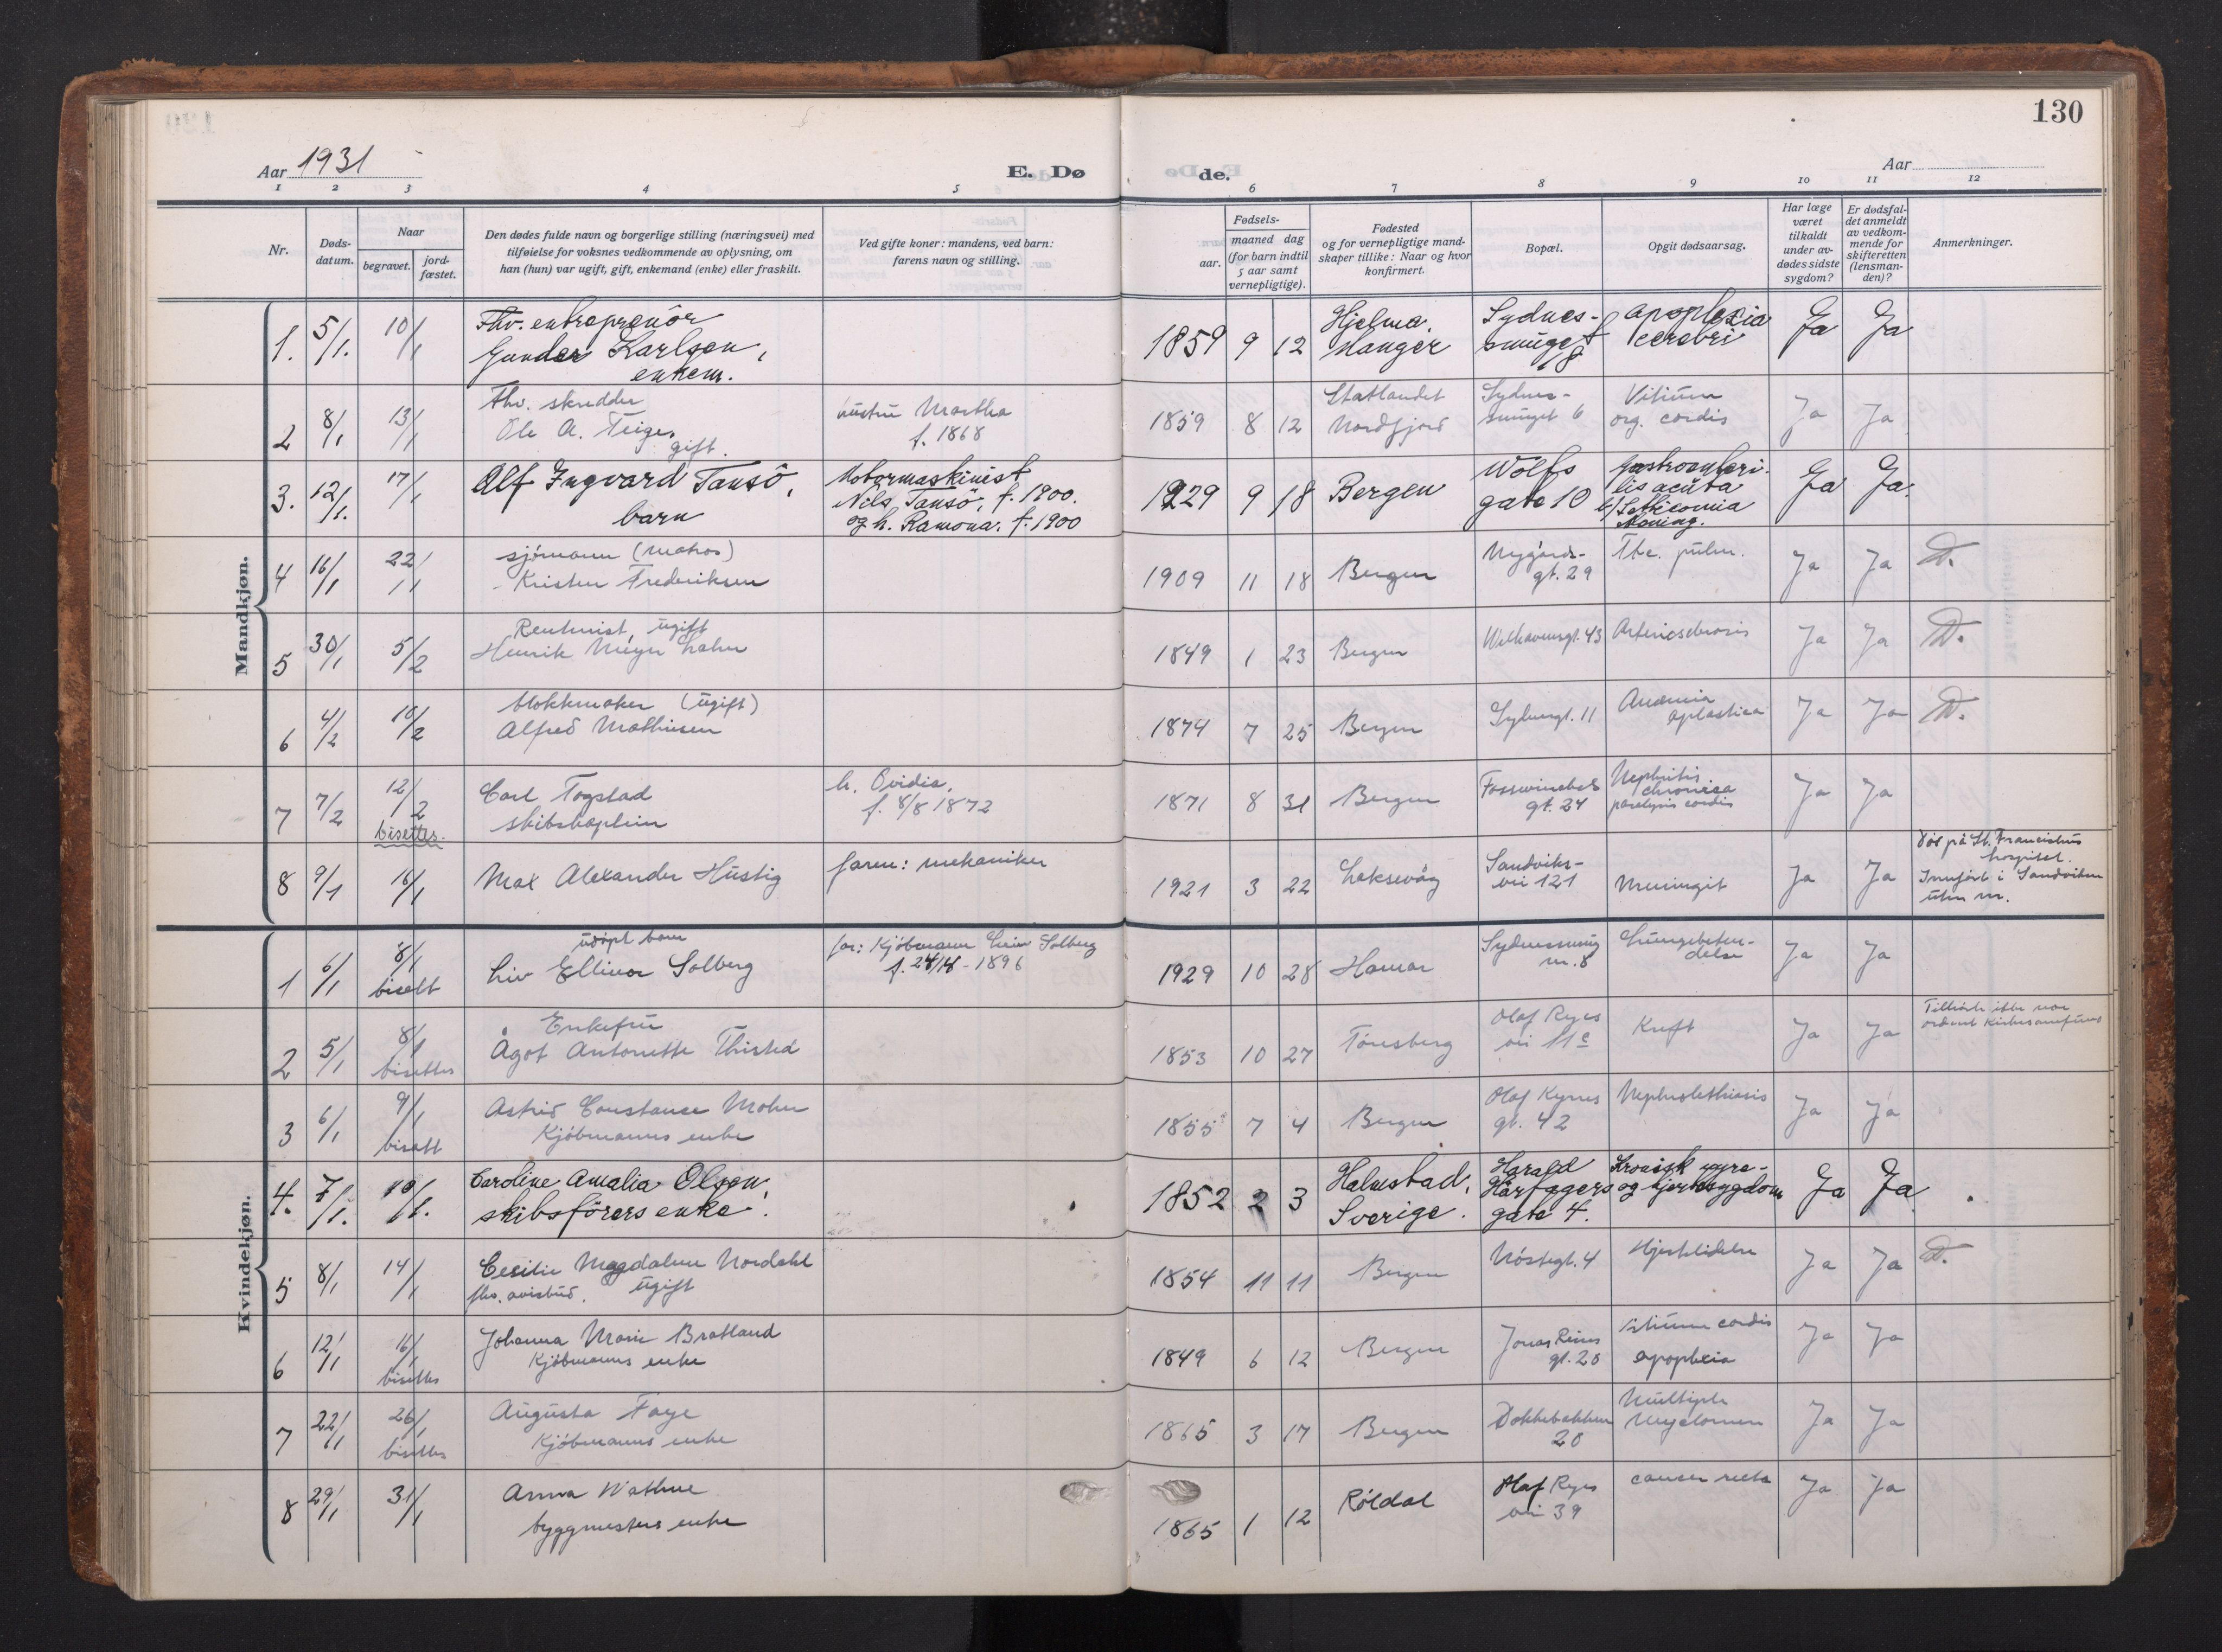 130
Aar 1931
E. Dø
de.
Aar
1 2 3 4 5 6 7 8 9 10 11 12
Nr.
Døds-
datum.
Naar
begravet.
jord-
fæstet.
Den dødes fulde navn og borgerlige stilling (næringsvei) med
tilføielse for voksnes vedkommende av oplysning, om
han (hun) var ugift, gift, enkemand (enke) eller fraskilt.
Ved gifte koner: mandens, ved barn:
farens navn og stilling.
Fødsels-
aar.
maaned dag
(for barn indtil
5 aar samt
vernepligtige).
Fødested
og for vernepligtige mand-
skaper tillike: Naar og hvor
konfirmert.
Bopæl.
Opgit dødsaarsag.
Har læge
været
tilkaldt
under av-
dødes sidste
sygdom?
Er dødsfal-
det anmeldt
av vedkom-
mende for
skifteretten
(lensman-
den)?
Anmerkninger.
Mandkjøn.
1. 5/1. 10/1
Fhv. entreprenör
Gunder Karlsen,
enkem.
1859 9 12
Hjelma.
Manger
Sydnes-
smuget
18
apoplexia
cerebri
Ja Ja
2 8/1 13/1
Fhv. skredder
Ole A. Teige,
gift.
hustru Martha
f. 1868
1859 8 12
Statlandet
Nordfjord
Sydnes-
smuget 6
Vitium
org. cordis
Ja Ja
3. 12/1. 17/1
Alf Ingvard Tansö,
barn
Motormaskinist
Nils Tansö, f. 1900.
og h. Ramona. f. 1900
1929 9 18
Bergen
Wolfs
gate 10
Gastroenteri-
tis acuta
Ja Ja.
4 16/1 22/1
sjömann (matros)
Kristen Frederiksen
1909 11 18
Bergen
Nygårds-
gt. 29
Tbc. pulm.
Ja Ja D.
5 30/1 5/2
Rentenist, ugift
Henrik Meyer Lahn
1849 1 23
Bergen
Welhavensgt. 43
Arteriesclerosis
Ja Ja D.
6 4/2 10/2
blokkmaker (ugift)
Alfred Mathiesen
1874 7 25
Bergen
11
Anæmia
aplastica
Ja Ja D.
7 7/2 12/2
bisettes.
Carl Togstad
skibskaptein
h. Ovidia,
f. 8/8 1872
1871 8 31
Bergen
Fosswinckels
gt. 24
Nephritis
chronica
paralysis cordis
Ja Ja
8 9/1 16/1
Max Alexander Hustig
faren: mekaniker
1921 3 22
Laksevåg
Sandviks-
vei 121
Meningit
Ja Ja
Död på St. Franciskus
hospital.
Innfört i Sandviken
uten nr.
Kvindekjøn.
1 6/1 8/1
bisatt
udöpt barn
Liv Ellinor Solberg
far: Kjöbmann Solberg
1896
1929 10 28
Hamar
Sydnessmug
nr. 8
Lungebeten-
delse
Ja Ja
2 5/1 8/1
bisettes
Enkefru
Ågot Antonette Thisted
1853 10 27
Tönsberg
Olaf Ryes
vei 11c
Kreft
Ja Ja
Tilhörte ikke vor
ordent kirkesamfund
3 6/1 9/1
bisatt
Astrid Constance Mohn
Kjöbmanns enke
1855 7 4
Bergen
Olaf Kyrres
gt. 42
Nephrolithiasis
Ja Ja
4. 7/1. 10/1.
Caroline Amalia Olsen,
skibsförers enke.
1852 2 3
Halmstad,
Sverige.
Harald
Hårfagers
gate 4.
Kronisk nyre-
og hjertesygdom
Ja Ja
5 8/1 14/1
Cecilie Magdalene Nordahl
fhv. avisbud. ugift
1854 11 11
Bergen
Nöstegt. 4
Hjertelidelse
Ja Ja D.
6 12/1 16/1
bisettes
Johanna Marie Bratland
Kjöbmanns enke
1849 6 12
Bergen
Jonas Reins
gt. 20
Vitium cordis
apoplexia
Ja Ja
7 22/1 26/1
bisettes
Augusta Faye
Kjöbmanns enke
1865 3 17
Bergen
Dokkebakken
20
Multiple
Myelomer
Ja Ja
8 29/1 31/1
Anna Wathne
byggmesters enke
1865 1 12
Röldal
Olaf Ryes
vei 39
cancer recta
Ja Ja